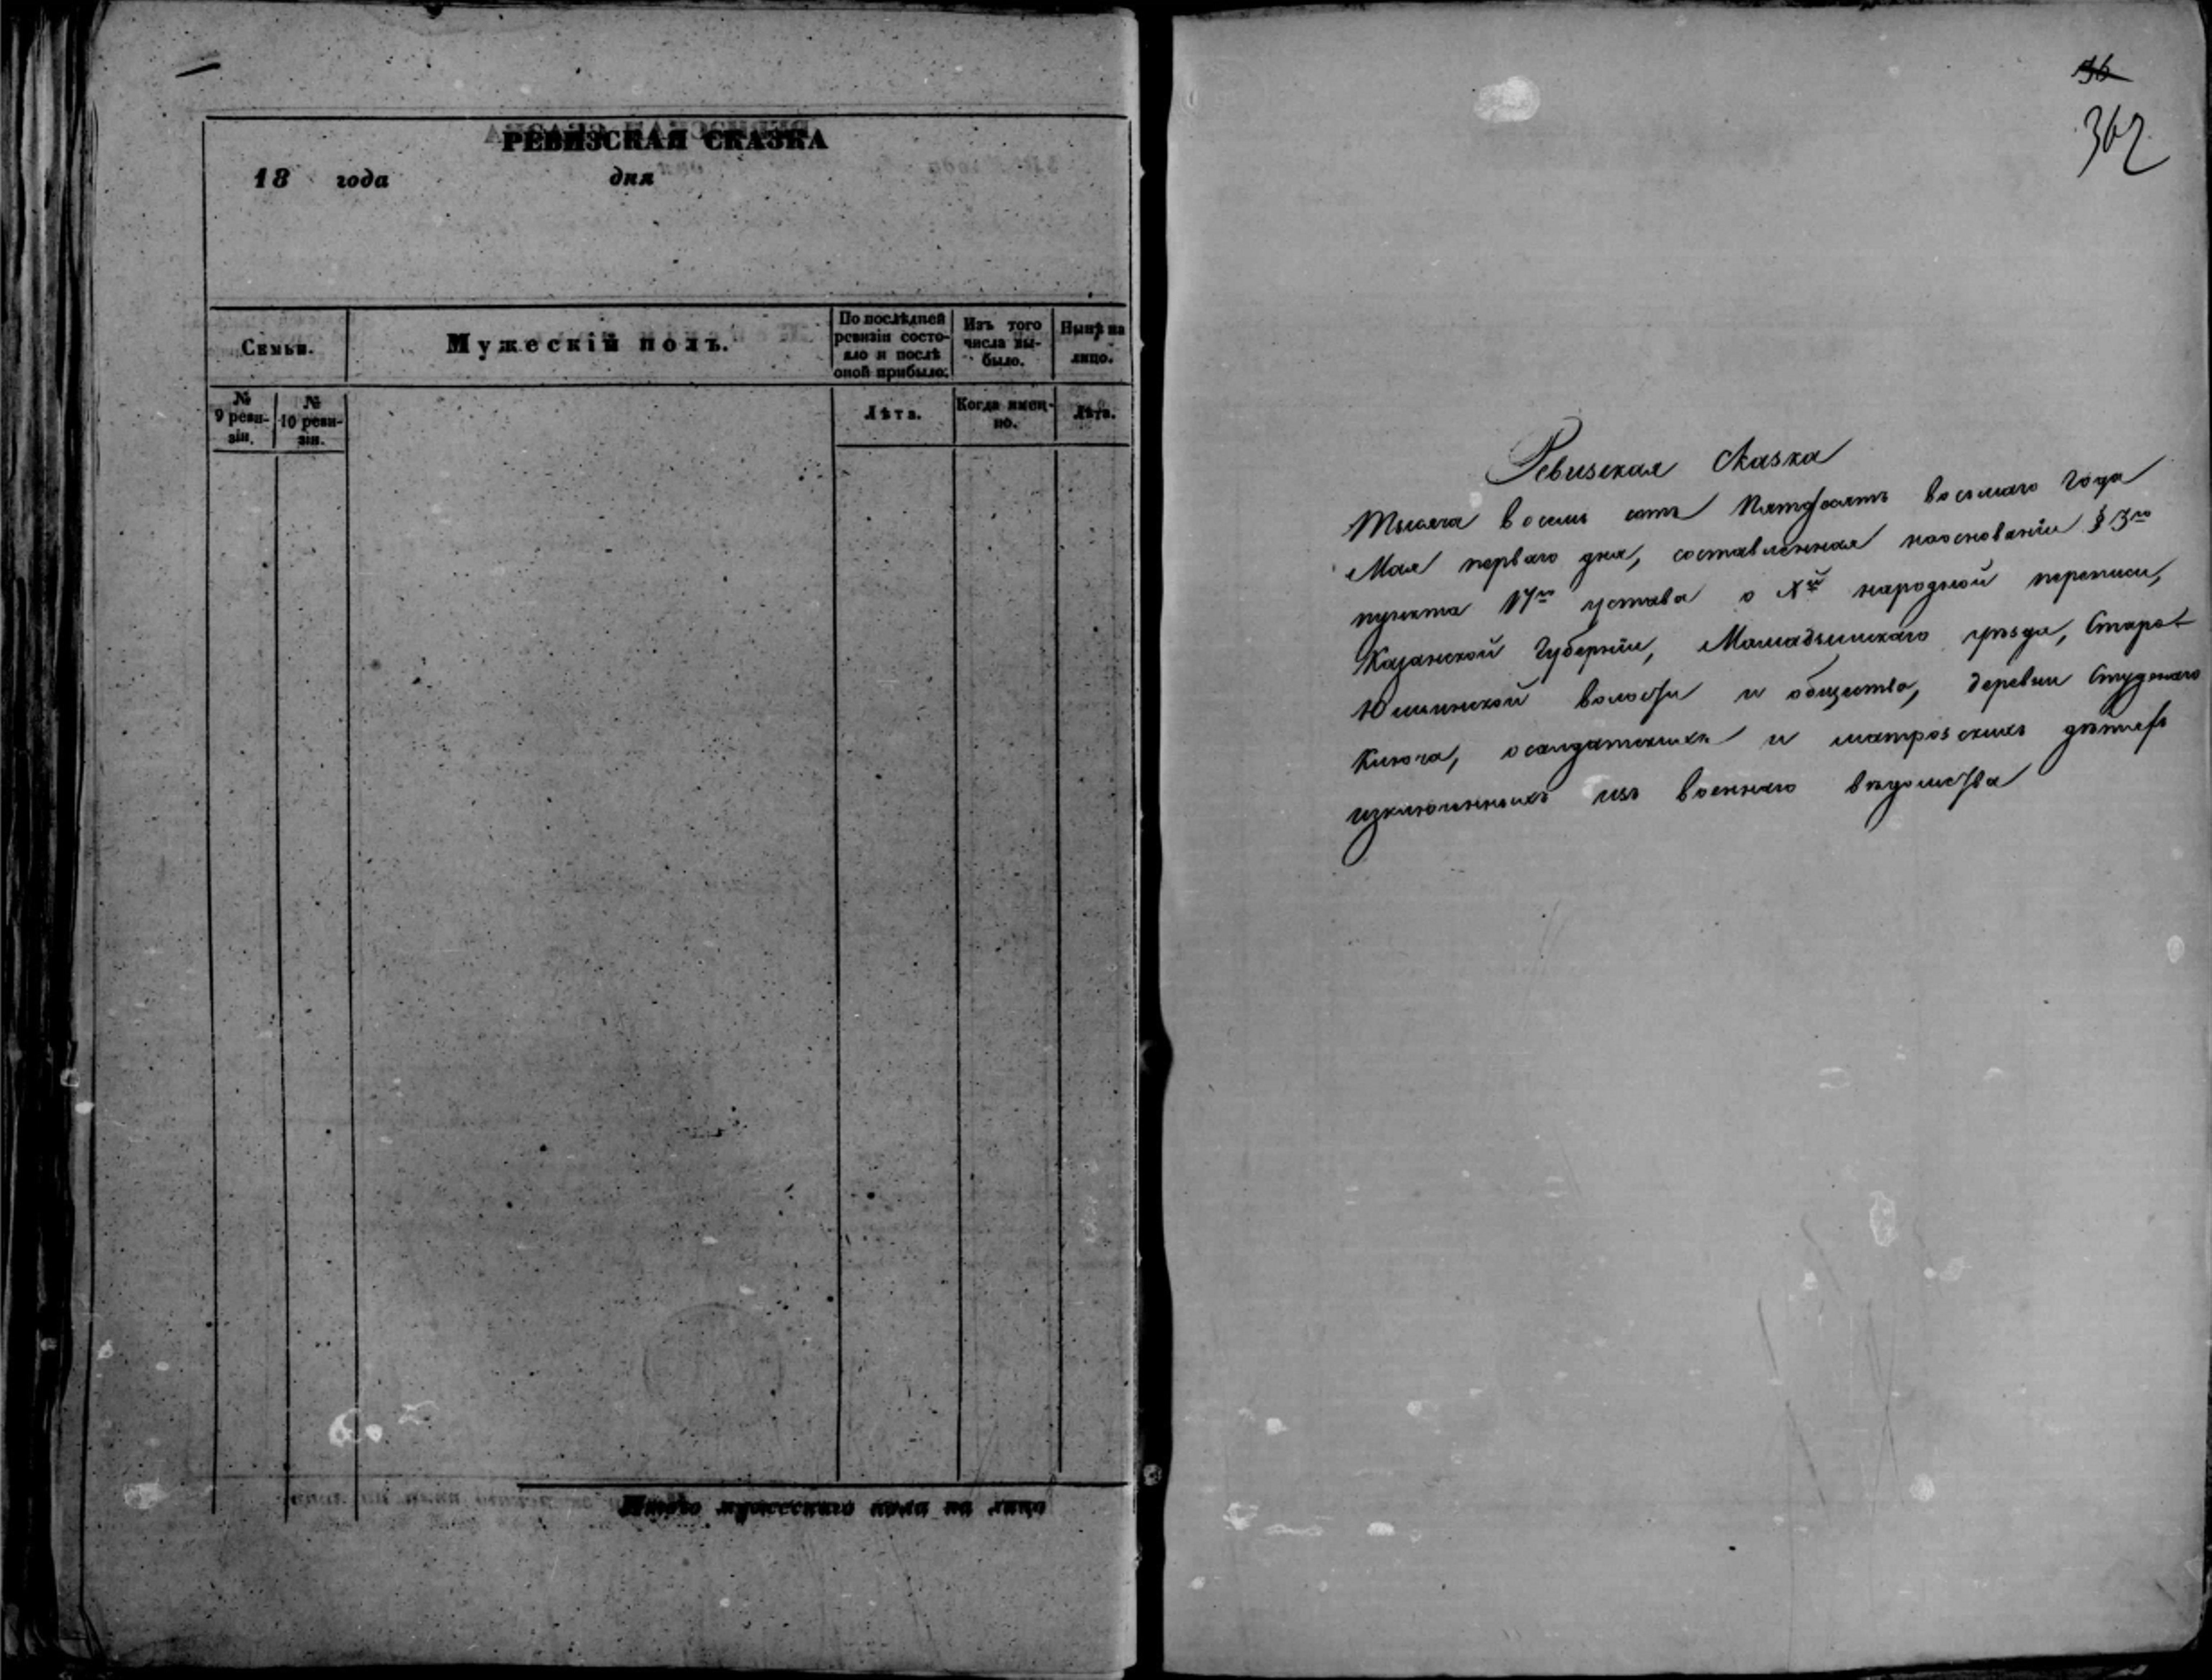 РЕВИЗСКАЯ СКАЗКА
18 года дня
Семьи.
Мужескій полъ.
По послѣдней ревизіи состояло и послѣ оной прибыло.
Изъ того числа выбыло.
Нынѣ на лицо.
№ 9 ревизіи.
№ 10 ревизіи.
Лѣта.
Когда именно.
Лѣта.
Итого мужескаго пола на лицо
36
362
Ревизская сказка
Тысяча восемь сотъ Пятдесятъ восьмаго Года
Мая перваго дня, составленная наоснованіи § 3го
пункта 17го устава о Xй народной переписи,
Казанской Губерніи, Мамадышскаго уѣзда, Старо-
Юмшинской волости и общества, деревни Студенаго
Ключа, осолдатскихъ и матроскихъ дѣтей
изключенныхъ изъ военнаго вѣдомства